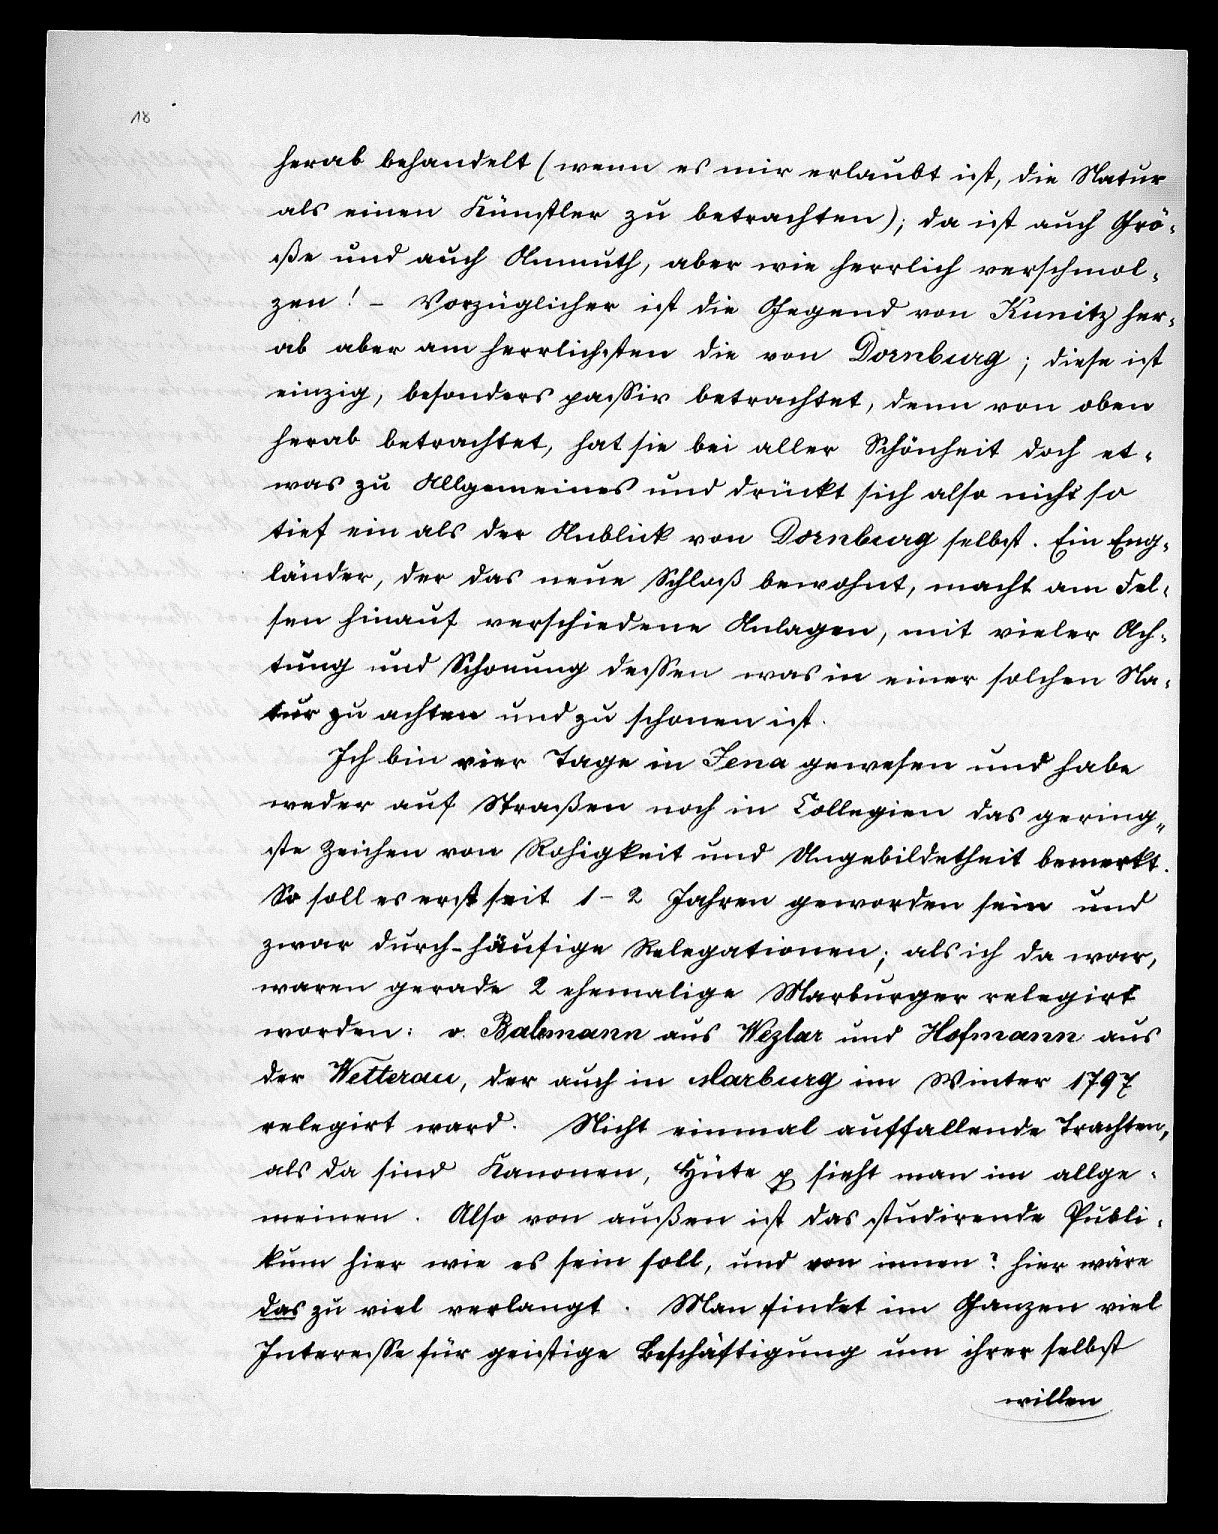 18
herab behandelt (wenn es mir erlaubt ist, die Natur
als einen Künstler zu betrachten); da ist auch Grö-
ße und auch Anmuth, aber wie herrlich verschmol-
zen! – Vorzüglicher ist die Gegend von Kunitz her-
ab aber am herrlichsten die von Dornburg; diese ist
einzig, besonders passiv betrachtet, denn von oben
herab betrachtet, hat sie bei aller Schönheit doch et-
was zu Allgemeines und drückt sich also nicht so
tief ein als der Anblick von Dornburg selbst. Ein Eng-
länder, der das neue Schloß bewohnt, macht am Fel-
sen hinauf verschiedene Anlagen, mit vieler Ach-
tung und Schonung dessen was in einer solchen Na-
tur zu achten und zu schonen ist.
Ich bin vier Tage in Jena gewesen und habe
weder auf Straßen noch in Collegien das gering-
ste Zeichen von Rohigkeit und Ungebildetheit bemerkt.
So soll es erst seit 1–2 Jahren geworden sein und
zwar durch häufige Relegationen; als ich da war,
waren gerade 2 ehemalige Marburger relegirt
worden: v. Balemann aus Wezlar und Hofmann aus
der Wetterau, der auch in Marburg im Winter 1797
relegirt ward. Nicht einmal auffallende Trachten,
als da sind Kanonen, Hüte p sieht man im allge-
meinen. Also von außen ist das studirende Publi-
kum hier wie es sein soll, und von innen? hier wäre
das zu viel verlangt. Man findet im Ganzen viel
Interesse für geistige Beschäftigung um ihrer selbst
willen